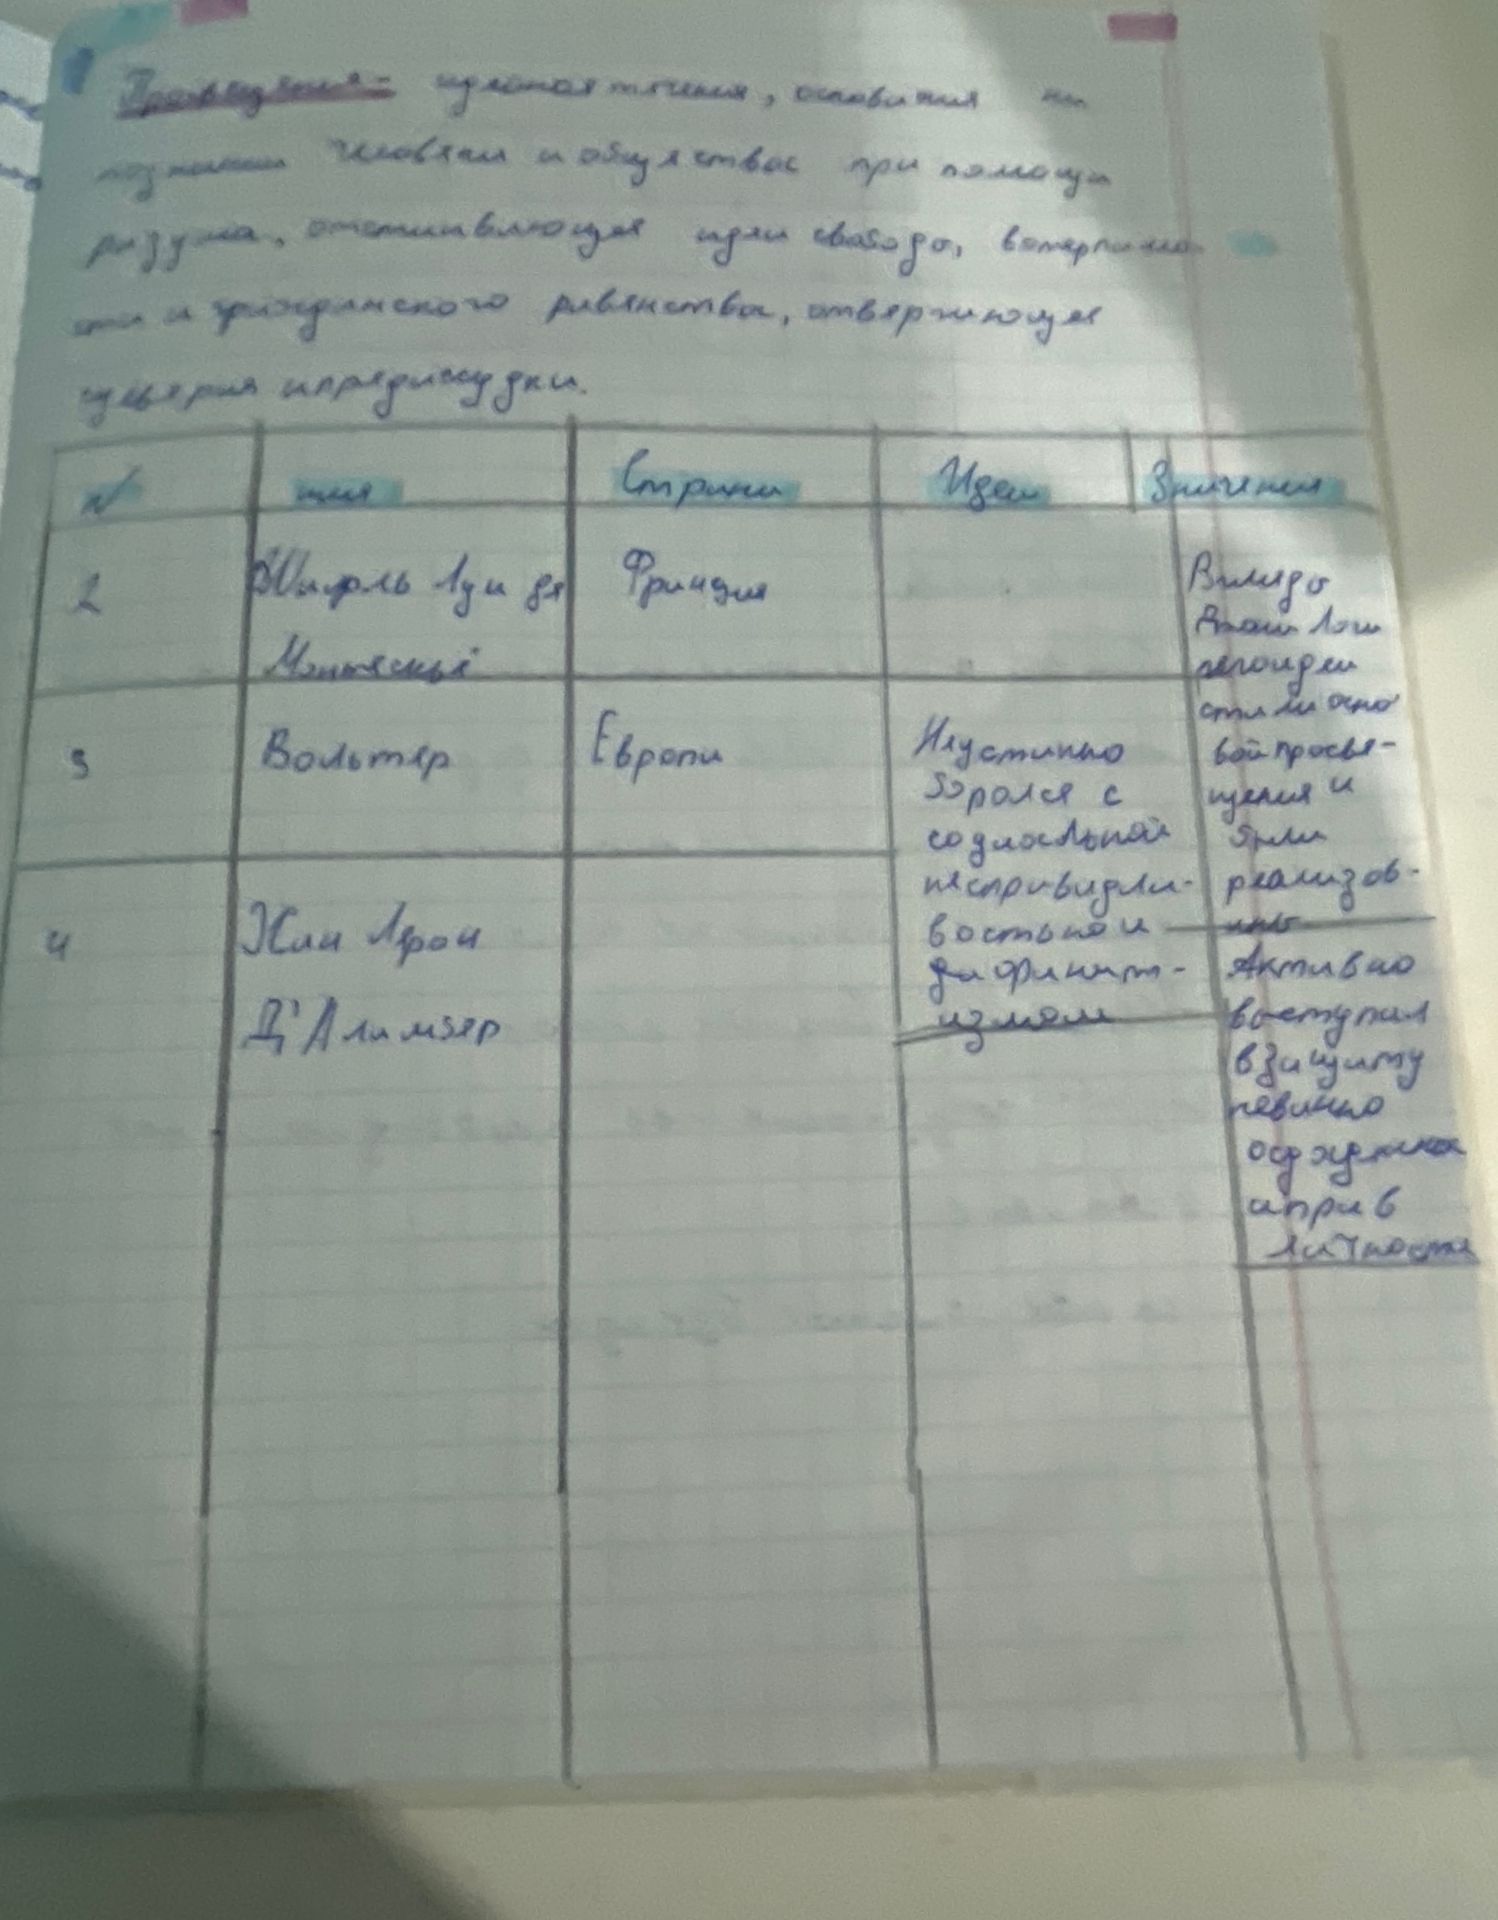 Просвещения - идейная течения, основания на
познании человека и общества при помощи
разума, отстаивающая идеи свободы, вотерпимо
сти и гражданского равенства, отвергающая
суеверия и предрассудки.
№ имя Страна Идеи Значения
2 Шарль Луи де Франция
Монтескьё
Взгляды
Джон Локк
его идеи
стали осно
вой просве-
щения и
были
реализов-
аны
3 Вольтер Европа
Неустанно
боролся с
социальной
несправидли-
востью и
фанат-
измом
Активно
выступил
в защиту
невинно
осужденна
и прав
личности
4 Жан Лерон
Д'Аламбер